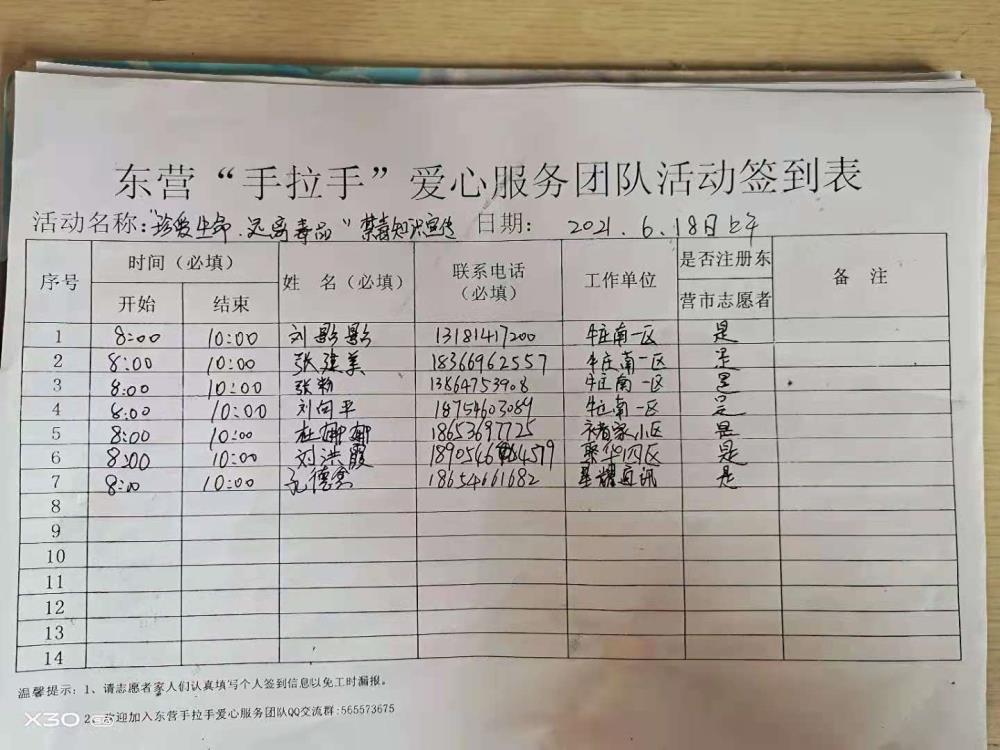 东营“手拉手”爱心服务团队活动签到表
活动名称：“珍爱生命.远离毒品”禁毒知识宣传 日期： 2021.6.18日上午
序号 时间（必填） 姓 名（必填） 联系电话（必填） 工作单位 是否注册东营市志愿者 备 注
开始 结束
1 8:00 10:00 刘影影 13181417200 牛庄南一区 是
2 8:00 10:00 张建美 18366962557 牛庄南二区 是
3 8:00 10:00 张粉 13864753908 牛庄南一区 是
4 8:00 10:00 刘向平 18754603089 牛庄南一区 是
5 8:00 10:00 杜娜娜 18653697725 褚家小区 是
6 8:00 10:00 刘洪霞 1890546 4579 聚华四区 是
7 8:00 10:00 孔德鑫 18654661682 星耀通讯 是
8
9
10
11
12
13
14
温馨提示：1、请志愿者家人们认真填写个人签到信息以免工时漏报。
2、欢迎加入东营手拉手爱心服务团队QQ交流群：565573675
X30